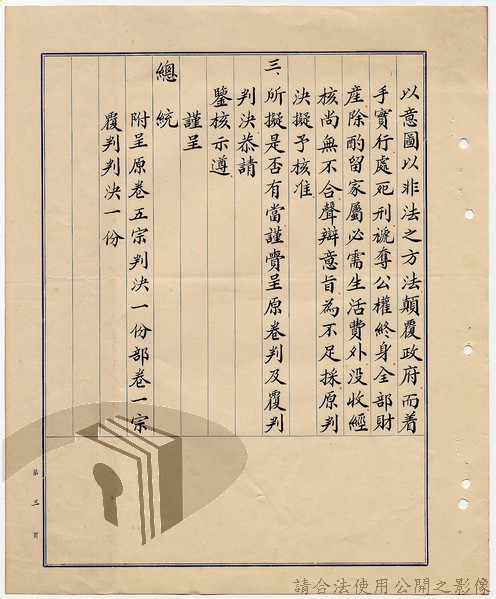 以意圖以非法之方法顛覆政府而着
手實行處死刑褫奪公權終身全部財
產除酌留家屬必需生活費外没收經
核尚無不合聲辯意旨為不足採原判
決擬予核准
三、所擬是否有當謹賫呈原卷判及覆判
判決恭請
鑒核示遵
謹呈
總統
附呈原卷五宗判決一份部卷一宗
覆判判決一份
第三頁
請合法使用公開之影像